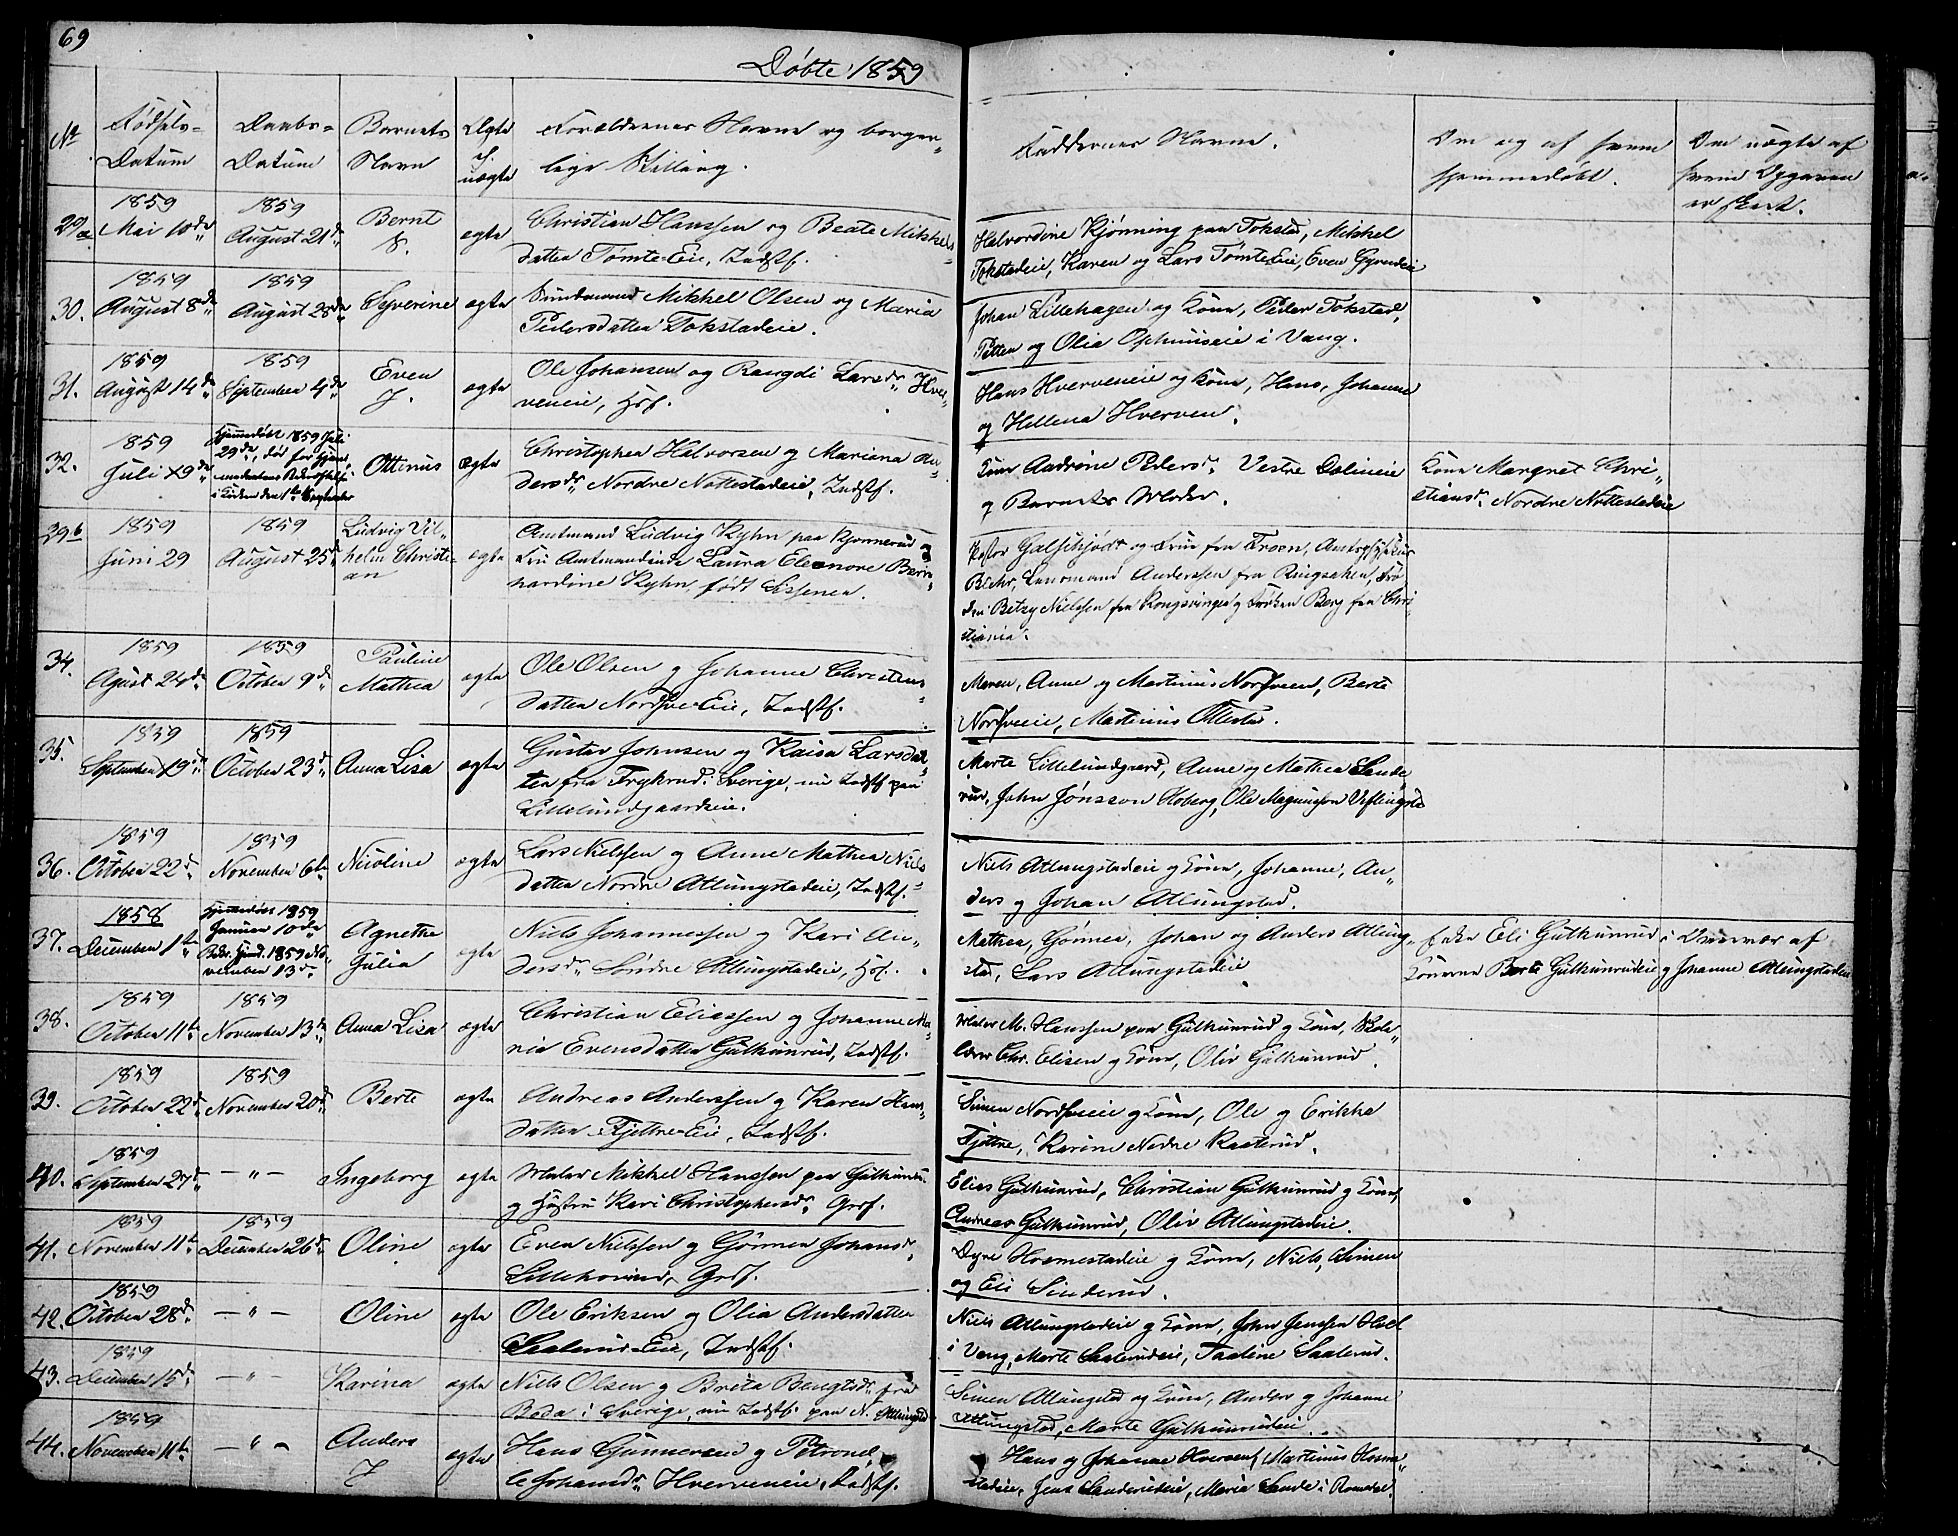 69
Döbte 1859
No
Födsels-
Datum
Daabs-
Datum
Barnets
Navn
Ægte
el.
uægte
Forældrenes Navne og borger-
lige Stilling.
Faddernes Navne.
Om og af hvem
hjemmedöbt.
Om uægte af
hvem Opgaven
er skeet.
29a
1859
Mai 10de
1859
August 21de
Bernt
ægte
Christian Hanssen og Beate Mikkels
datter Tömte-Eie, Indstf.
Halvordine Kjönning paa Tokstad, Mikkel
Tokstadeie, Karen og Lars Tömte-Eie, Even
30.
1859
August 8de
1859
August 28de
Syverine
ægte
Mikkel Olsen og Maria
Pedersdatter Tokstadeie.
Johan Lillehagen og Kone, Peder Tokstad,
Petter og Olia Ophuuseie i Vang.
31.
1859
August 14de
1859
September 4de
Even
J.
ægte
Ole Johansen og Rangdi Larsdr Hver-
veneie, Hsf.
Hans Hverveneie og Kone, Hans, Johanne
og Hellena Hverven.
32.
1859
Juli 29de
Hjemmedöbt 1859 Juli
29de, död för
i Kirken den 1te September
Ottinus
Ægte
Christopher Halvorsen og Mariana An-
dersdr Nordre Nottestadeie, Indstf.
Kone Andrine Pedersdr Vestre Dalineie
og Barnets Moder.
Kone Margret Chri-
stiansdr Nordre Nottestadeie
29b
1859
Juni 29
1859
August 25de
Ludvig Vil-
helm Christi-
an
ægte
Amtmand Ludvig Kyhn paa Kjonnerud og
Fru Amtmandinde Laura Eleonore Bern-
hardine Kyhn, födt Sissener.
Pastor og Frue fra Froen,
Lensmand Anderssen fra Ringsaker, Frö-
ken Betzy Nielssen fra Kongsvinger og Fröken Berg fra Chri-
stiania.
34.
1859
Agust 24de
1859
October 9de
Pauline
Mathea
ægte
Ole Olsen og Johanne Christens-
datter Nordsve-Eie, Indstf.
Maren, Anne og Martinus Nordsveen, Berte
Nordsveeie, Martinus Ottestad.
35.
1859
September 19de
1859
October 23de
Anna Lisa
ægte
Gustav Johnsen og Kaisa Larsdat-
ter fra Frykerud i Sverige, nu Indstf. paa
Lillelundgaardeie.
Marte Lillelundgaard, Anne og Mathea Sande-
rud, John Jönsson Hoberg, Ole Magnusson
36.
1859
October 22de
1859
November 6te
Nicoline
ægte
Lars Nielssen og Anne Mathea Niels-
datter Nordre Atlungstadeie, Indstf.
Niels Atlungstadeie og Kone, Johanne, An-
ders og Johan Atlungstad.
37.
1858
December 1te
Hjemmedöbt 1859
Januar 10de
1859 No-
vember 13de
Agnethe
Julia
ægte
Niels Johannessen og Kari An-
dersdr Söndre Atlungstadeie, Hsf.
Mathea, Gönner, Johan og Anders Atlung-
stad, Lars Atlungstadeie
Enke Eli Gulkunrud i Overvær af
Konerne Berte Gulkunrudeie og Johanne Atlungstadeie
38.
1859
October 11te
1859
November 13de
Anna Lisa
ægte
Christian Eliassen og Johanne Ma-
rie Evensdatter Gulkunrud, Indstf.
Maler M. Hanssen paa Gulkunrud og Kone, Skole-
lærer Chr. Elisen og Kone, Oliv Gulkunrud.
39.
1859
October 22de
1859
November 20de
Berte
ægte
Andreas Anderssen og Karen Hans-
datter Fjettre-Eie, Indstf.
Simen Nordsveeie og Kone, Ole og Erikka
Fjettre, Karine Nedre Rasterud.
40.
1859
September 27de
— " —
Ingeborg
ægte
Maler Mikkel Hanssen paa Gulkunrud
og Hustru Kari Christophersdr Grdf.
Elias Gulkunrud, Christian Gulkunrud og Kone,
Andreas Gulkunrud, Oliv Atlungstadeie.
41.
1859
November 11te
1859
December 26de
Oline
ægte
Even Nielssen og Gönner Johansdr
Lillehorud, Grdf.
Dyre Hosmestadeie og Kone, Niels, Simen
og Eli Sinderud.
42.
1859
October 28de
— " —
Oline
ægte
Ole Eriksen og Olia Andersdatter
Saalerud-Eie, Indstf.
Niels Atlungstadeie og Kone, John Jenssen Hoel
i Vang, Marte Saalerudeie, Pauline Saalerud.
43.
1859
December 15de
— " —
Karina
ægte
Niels Olsen og Brita Bengtsdr fra
Boda i Sverige, nu Indstf. paa N. Atlungstad
Simen Atlungstad og Kone, Anders og Johanne
Atlungstad, Marte Gulkunrudeie.
44.
1859
November 11te
— " —
Anders
J
ægte
Hans Gunnersen og Petronel-
le Johansdr Hverveneie, Indstf.
Hans og Johanne Hverven, Martinus Hosme-
stadeie, Jens Sanderudeie, Marie Sande i Romedal.